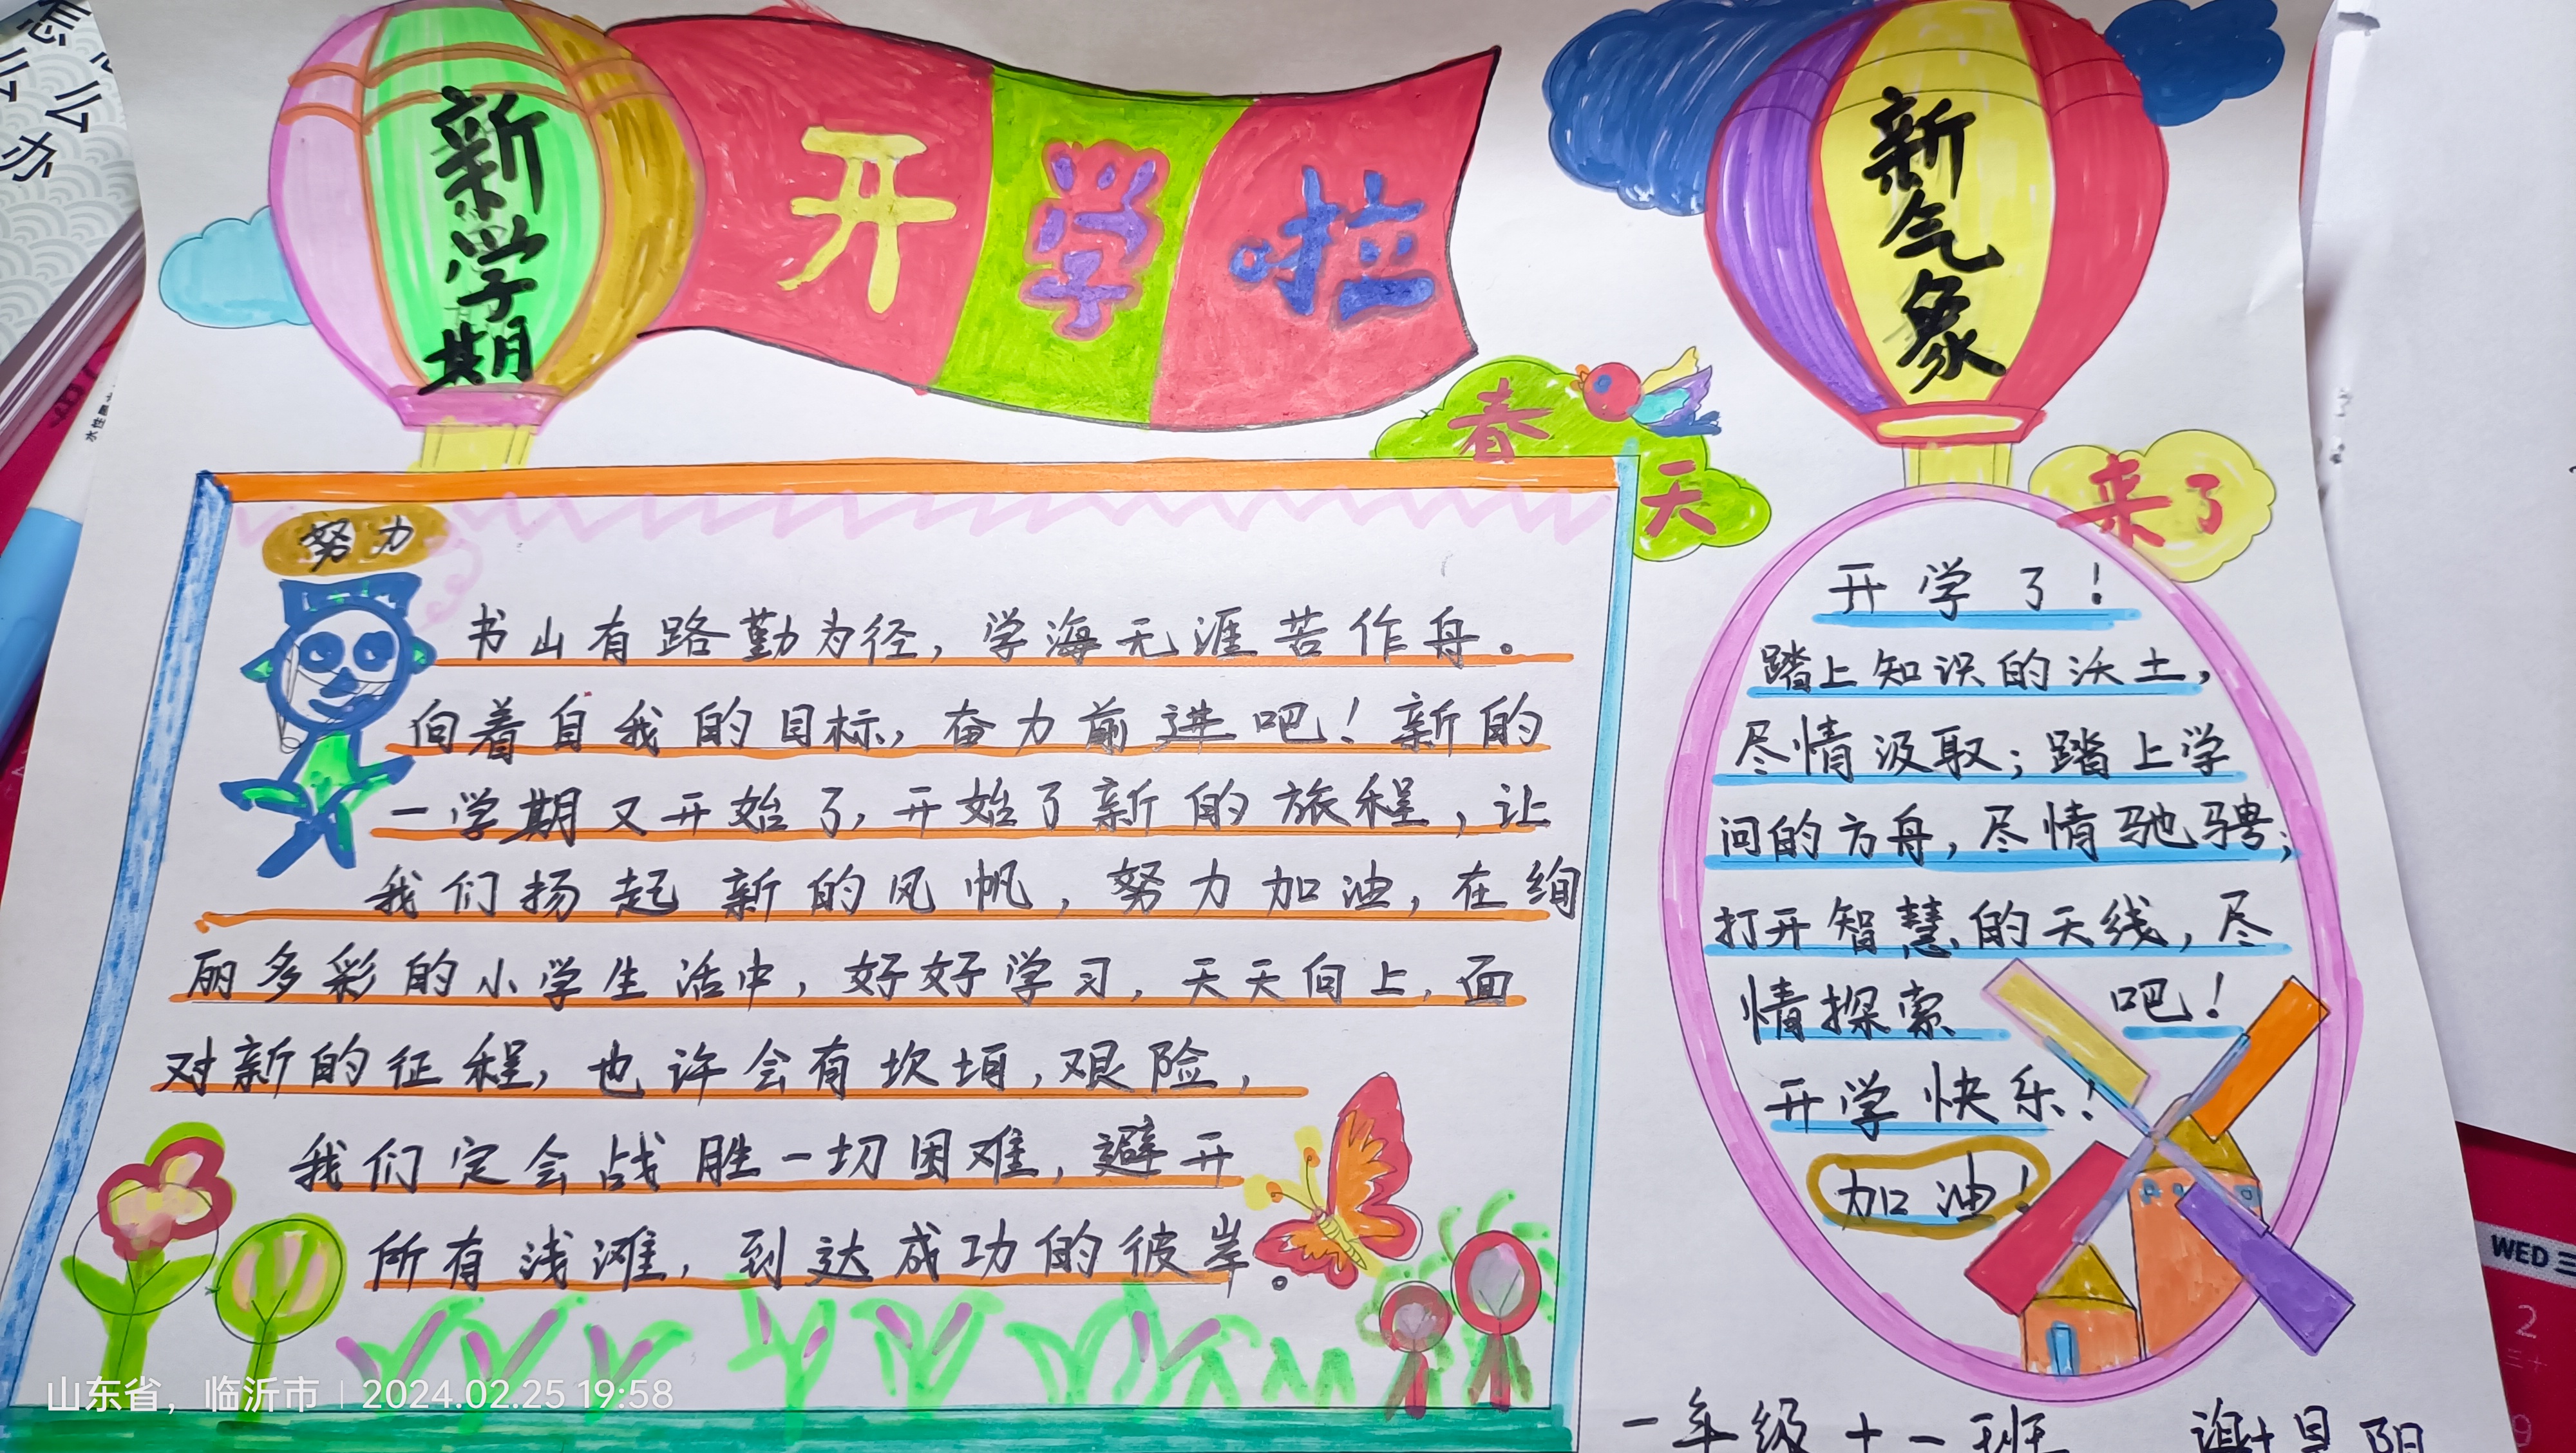 怎么
么办
新学期
开学啦
新气象
春天
来了
努力
书山有路勤为径，学海无涯苦作舟。
向着自我的目标，奋力前进吧！新的
一学期又开始了，开始了新的旅程，让
我们扬起新的风帆，努力加油，在绚
丽多彩的小学生活中，好好学习，天天向上，面
对新的征程，也许会有坎坷，艰险，
我们定会战胜一切困难，避开
所有浅滩，到达成功的彼岸。
开学了！
踏上知识的沃土，
尽情汲取；踏上学
问的方舟，尽情驰骋；
打开智慧的天线，尽
情探索吧！
开学快乐！
加油！
一年级十一班
WED 三
2
9
山东省，临沂市 | 2024.02.25 19:58